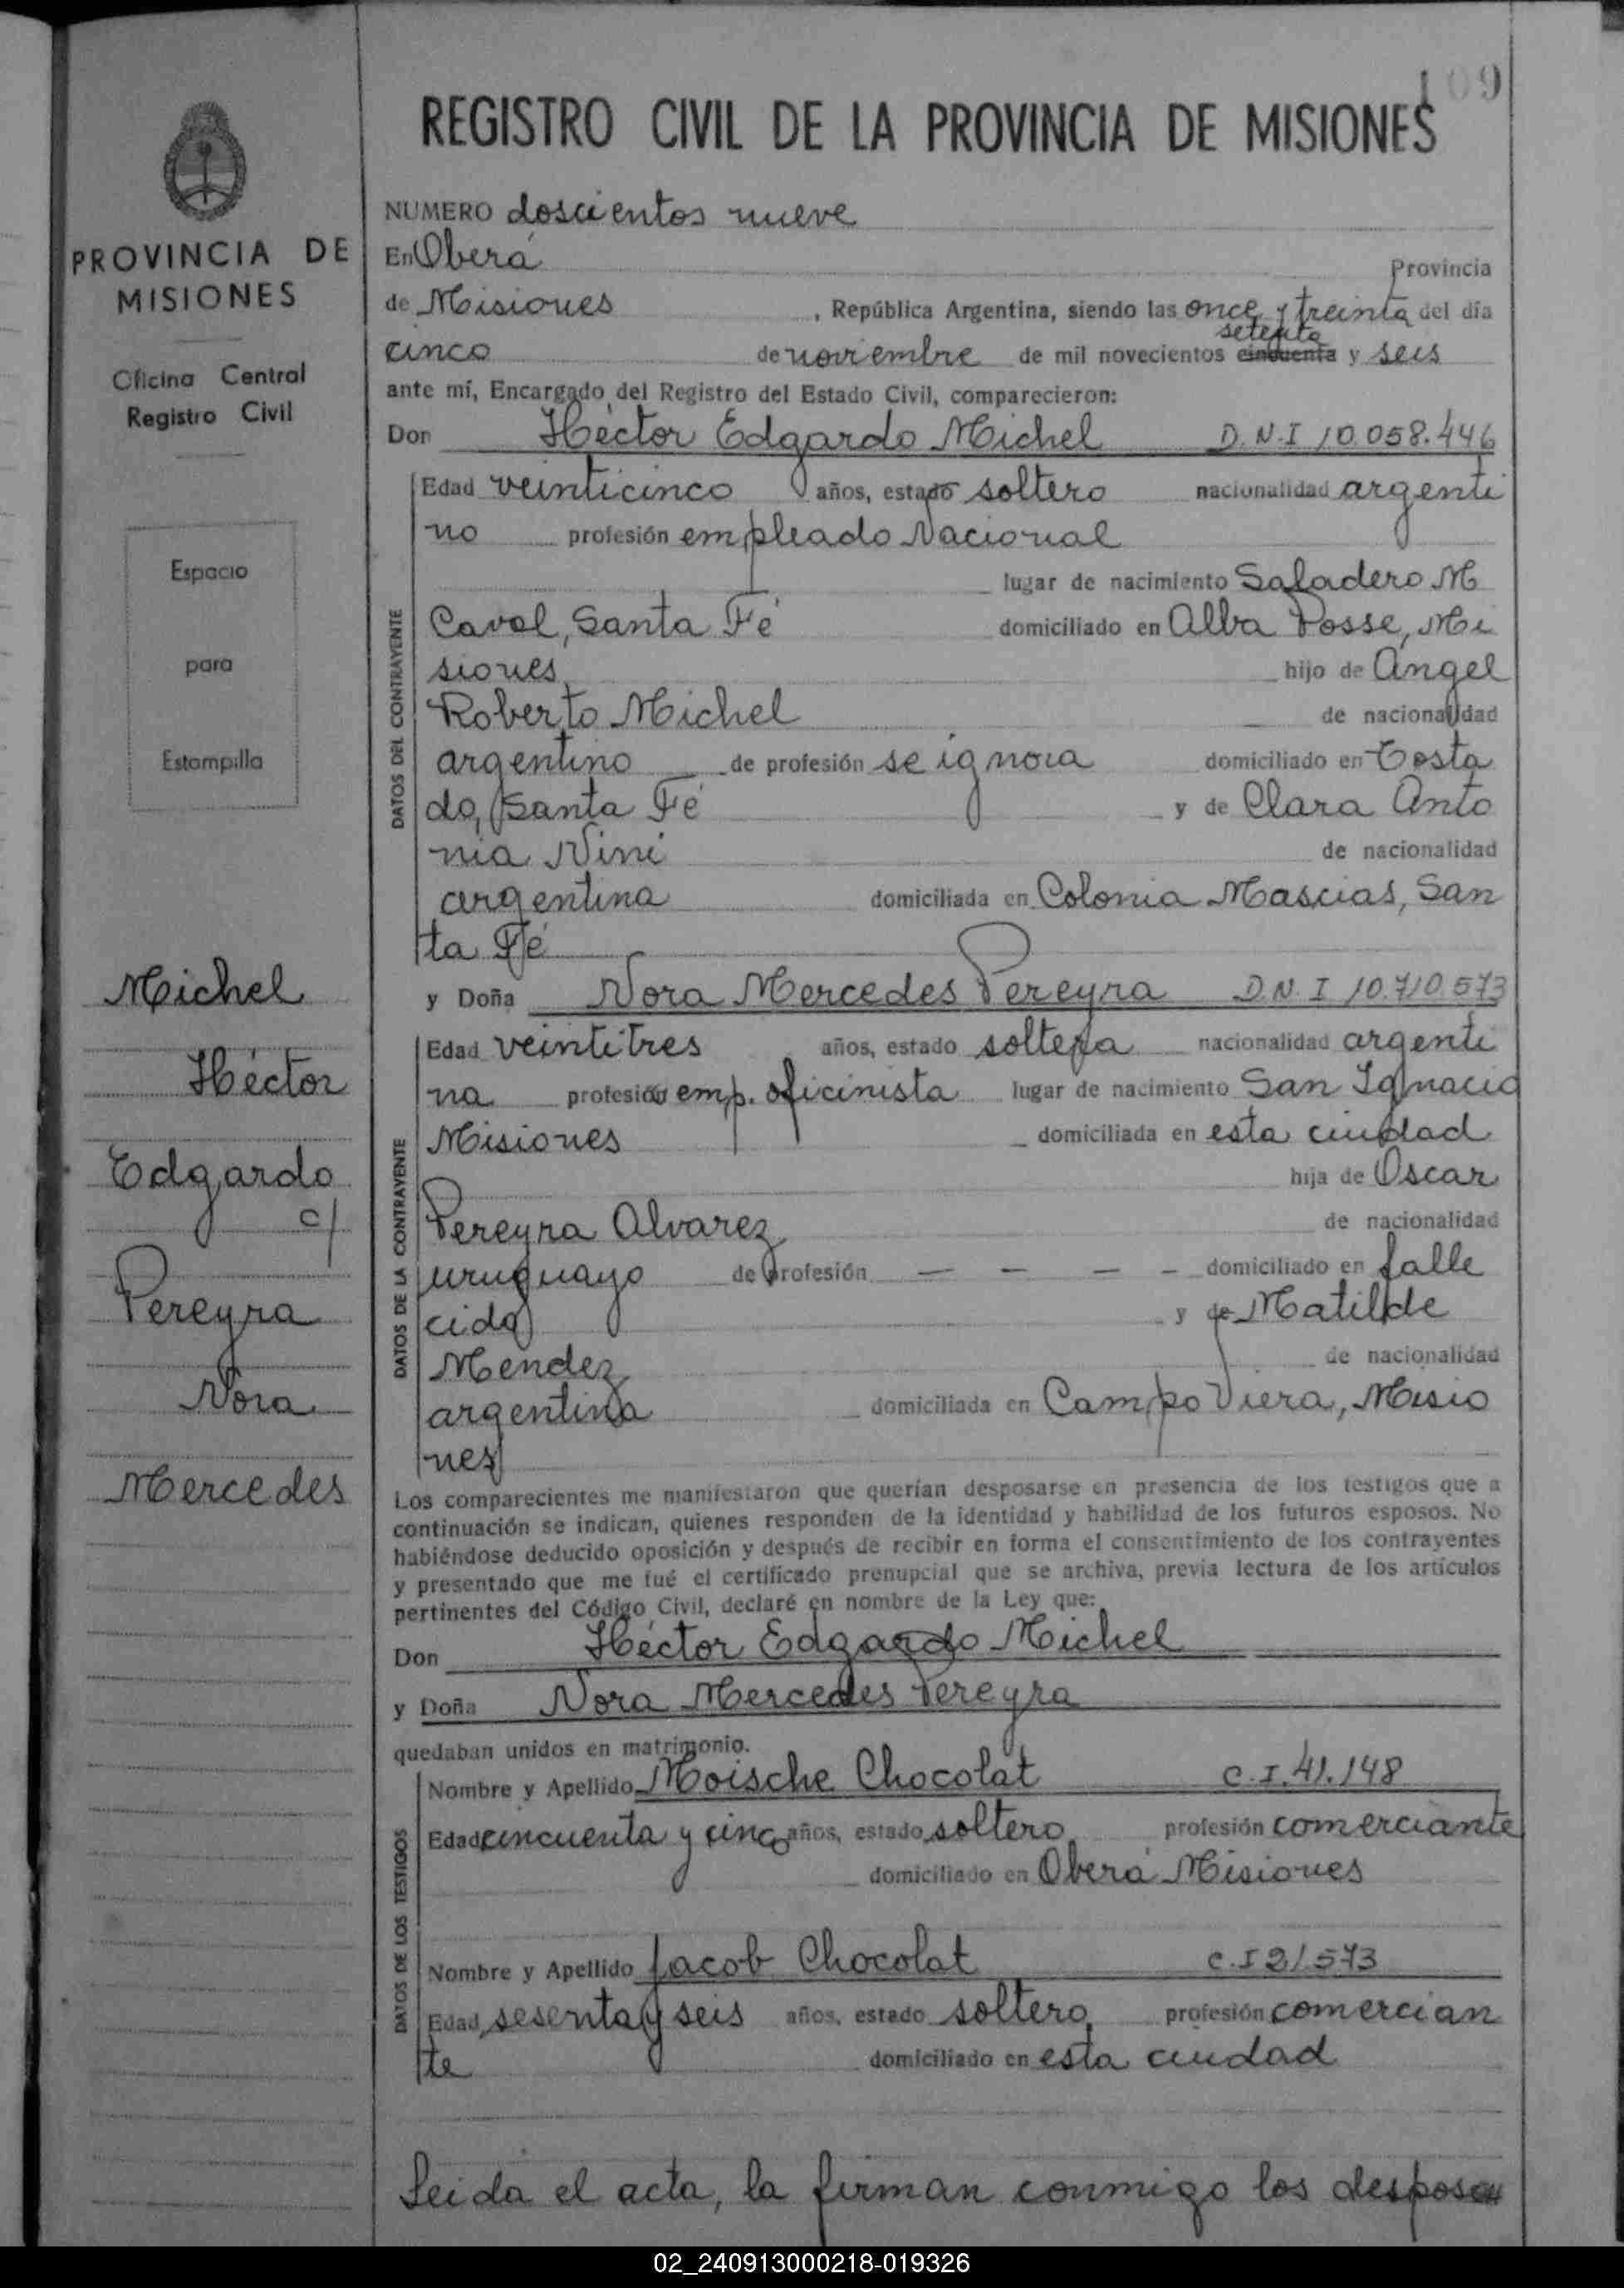 109
REGISTRO CIVIL DE LA PROVINCIA DE MISIONES
PROVINCIA DE
MISIONES
Oficina Central
Registro Civil
Espacio
para
Estampilla
Michel
Héctor
Edgardo
c/
Pereyra
Nora
Mercedes
NUMERO doscientos nueve
En Oberá Provincia
de Misiones , República Argentina, siendo las once y treinta del día
setenta
cinco de noviembre de mil novecientos cincuenta y seis
ante mí, Encargado del Registro del Estado Civil, comparecieron:
Don Héctor Edgardo Michel D.N.I 10.058.446
DATOS DEL CONTRAYENTE
Edad veinticinco años, estado soltero nacionalidad argenti
no profesión empleado Nacional
lugar de nacimiento Saladero M
Caval, Santa Fé domiciliado en Alba Posse, Mi
siones hijo de Angel
Roberto Michel de nacionalidad
argentino de profesión se ignora domiciliado en Costa
do, Santa Fé y de Clara Anto
nia Nini de nacionalidad
argentina domiciliada en Colonia Mascias, San
ta Fé
y Doña Nora Mercedes Pereyra D.N.I 10.710.573
DATOS DE LA CONTRAYENTE
Edad veintitres años, estado soltera nacionalidad argenti
na profesión emp. oficinista lugar de nacimiento San Ignacio
Misiones domiciliada en esta ciudad
hija de Oscar
Pereyra Alvarez de nacionalidad
uruguayo de profesión — — — — domiciliado en falle
cido y de Matilde
Mendez de nacionalidad
argentina domiciliada en Campo Viera, Misio
nes
Los comparecientes me manifestaron que querían desposarse en presencia de los testigos que a
continuación se indican, quienes responden de la identidad y habilidad de los futuros esposos. No
habiéndose deducido oposición y después de recibir en forma el consentimiento de los contrayentes
y presentado que me fué el certificado prenupcial que se archiva, previa lectura de los artículos
pertinentes del Código Civil, declaré en nombre de la Ley que:
Don Héctor Edgardo Michel
y Doña Nora Mercedes Pereyra
quedaban unidos en matrimonio.
DATOS DE LOS TESTIGOS
Nombre y Apellido Moische Chocolat C.I. 41.148
Edad cincuenta y cinco años, estado soltero profesión comerciante
domiciliado en Oberá Misiones
Nombre y Apellido Jacob Chocolat C.I 21573
Edad sesenta y seis años, estado soltero profesión comercian
te domiciliado en esta ciudad
Leida el acta, la firman conmigo los desposa
02_240913000218-019326